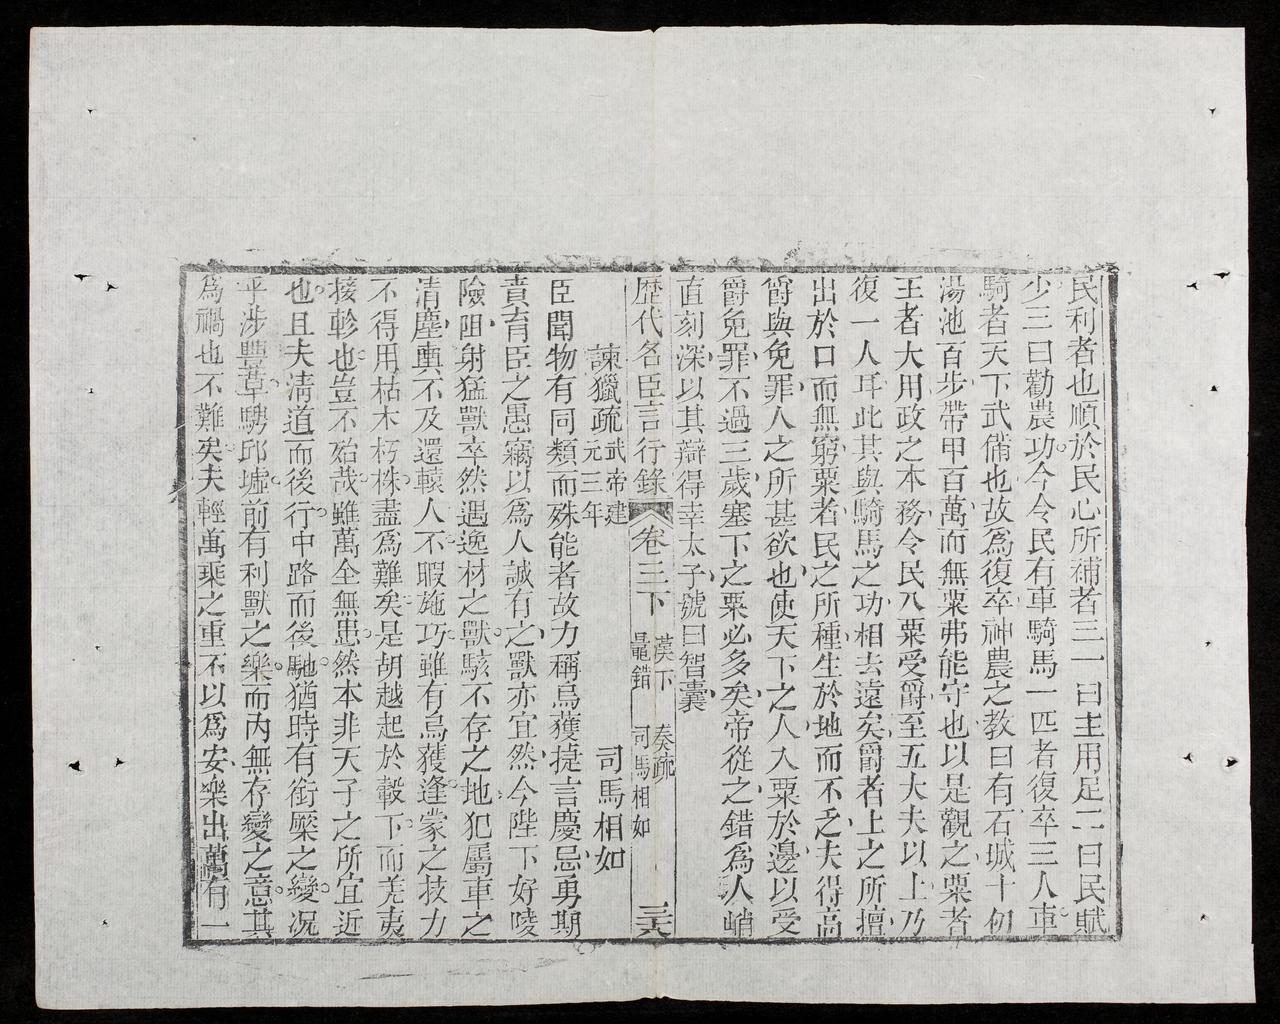 民利者也順於民心所補者三一曰主用足二曰民賦
少三曰勸農功今令民有車騎馬一匹者復卒三人車
騎者天下武備也故為復卒神農之教曰有石城十仞
湯池百步帶甲百萬而無粟弗能守也以是觀之粟者
王者大用政之本務令民入粟受爵至五大夫以上乃
復一人耳此其與騎馬之功相去遠矣爵者上之所擅
出於口而無窮粟者民之所種生於地而不乏夫得高
爵與免罪人之所甚欲也使天下之人入粟於邊以受
爵免罪不過三歲塞下之粟必多矣帝從之錯為人峭
直刻深以其辯得幸太子號曰智囊
歷代名臣言行錄 卷三下 漢下 鼂錯 奏疏 司馬相如 三六
諫獵疏 武帝建元三年 司馬相如
臣聞物有同類而殊能者故力稱烏獲捷言慶忌勇期
賁育臣之愚竊以為人誠有之獸亦宜然今陛下好陵
險阻射猛獸卒然遇逸材之獸駭不存之地犯屬車之
清塵輿不及還轅人不暇施巧雖有烏獲逢蒙之技力
不得用枯木朽株盡為難矣是胡越起於轂下而羌夷
接軫也豈不殆哉雖萬全無患然本非天子之所宜近
也且夫清道而後行中路而後馳猶時有銜橜之變況
乎涉豐草騁邱墟前有利獸之樂而內無存變之意其
為禍也不難矣夫輕萬乘之重不以為安樂出萬有一